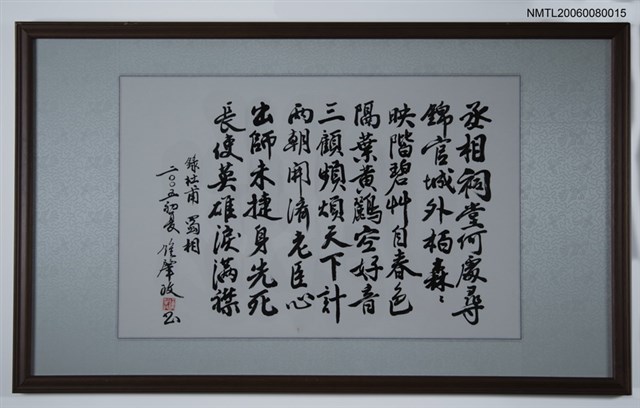 NMTL20060080015
丞相祠堂何處尋
錦官城外柏森〻
映階碧艸自春色
隔葉黄鸝空好音
三顧煩煩天下計
兩朝開濟老臣心
出師未捷身先死
長使英雄淚滿襟
錄杜甫 蜀相
二〇〇五初夏 鍾肇政 書